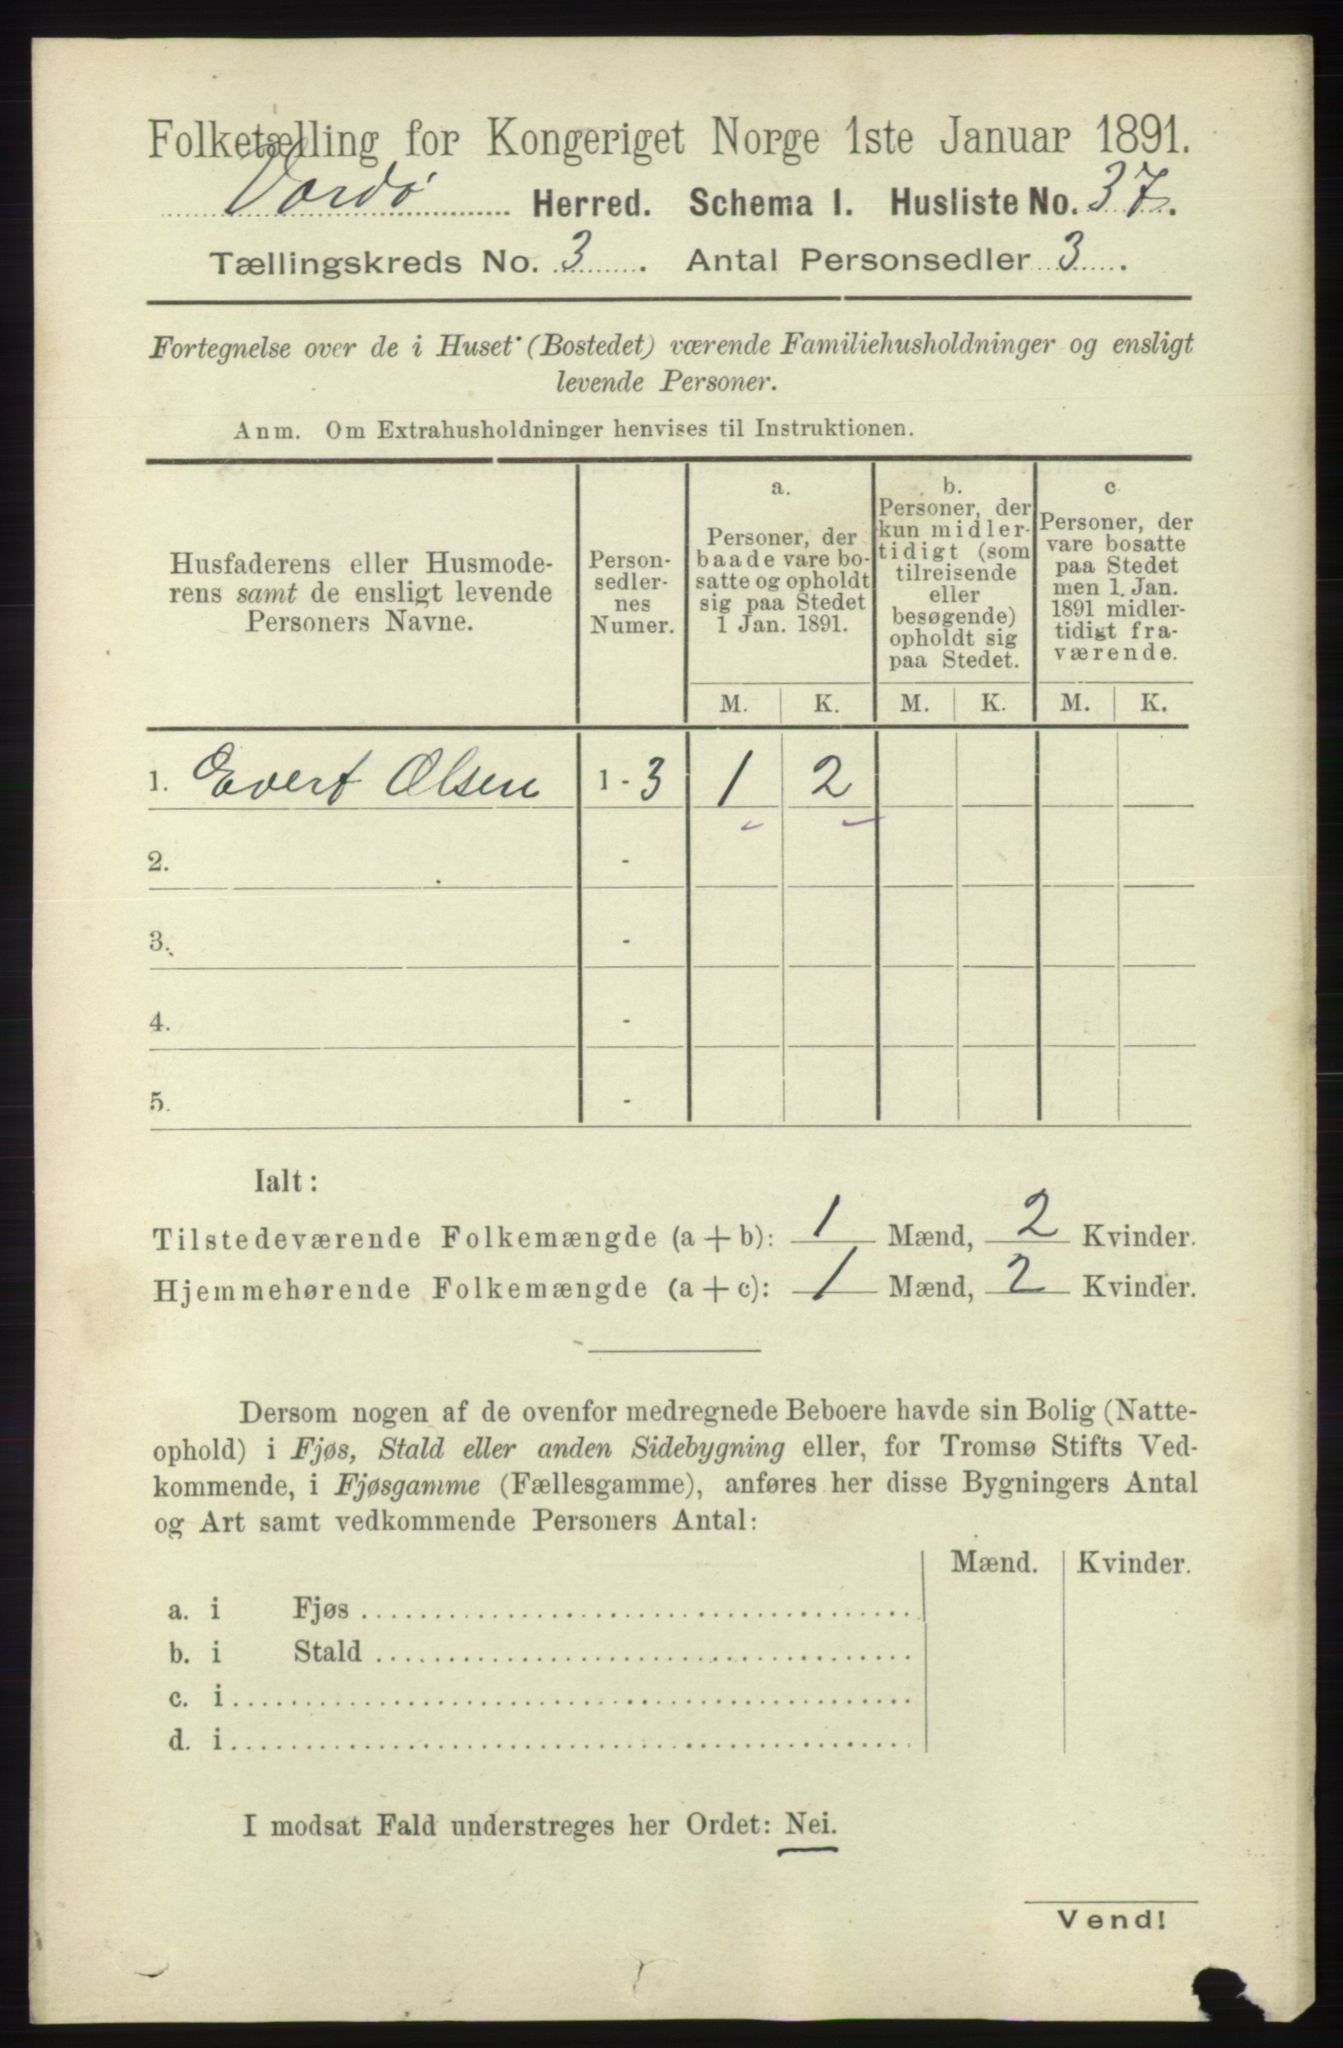 Folketælling for Kongeriget Norge 1ste Januar 1891.
Vardø Herred. Schema 1. Husliste No. 37.
Tællingskreds No. 3. Antal Personsedler 3.
Fortegnelse over de i Huset (Bostedet) værende Familiehusholdninger og ensligt
levende Personer.
Anm. Om Extrahusholdninger henvises til Instruktionen.
Husfaderens eller Husmode-
rens samt de ensligt levende
Personers Navne.
Person-
sedler-
nes
Numer.
a.
Personer, der
baade vare bo-
satte og opholdt
sig paa Stedet
1 Jan. 1891.
b.
Personer, der
kun midler-
tidigt (som
tilreisende
eller
besøgende)
opholdt sig
paa Stedet.
c
Personer, der
vare bosatte
paa Stedet
men 1. Jan.
1891 midler-
tidigt fra-
værende.
M. K. M. K. M. K.
1. Evert Olsen 1 - 3 1 2
2. -
3. -
4. -
5. -
Ialt:
Tilstedeværende Folkemængde (a + b): 1 Mænd, 2 Kvinder.
Hjemmehørende Folkemængde (a + c): 1 Mænd, 2 Kvinder.
Dersom nogen af de ovenfor medregnede Beboere havde sin Bolig (Natte-
ophold) i Fjøs, Stald eller anden Sidebygning eller, for Tromsø Stifts Ved-
kommende, i Fjøsgamme (Fællesgamme), anføres her disse Bygningers Antal
og Art samt vedkommende Personers Antal:
Mænd. Kvinder.
a. i Fjøs
b. i Stald
c. i
d. i
I modsat Fald understreges her Ordet: Nei.
Vend!